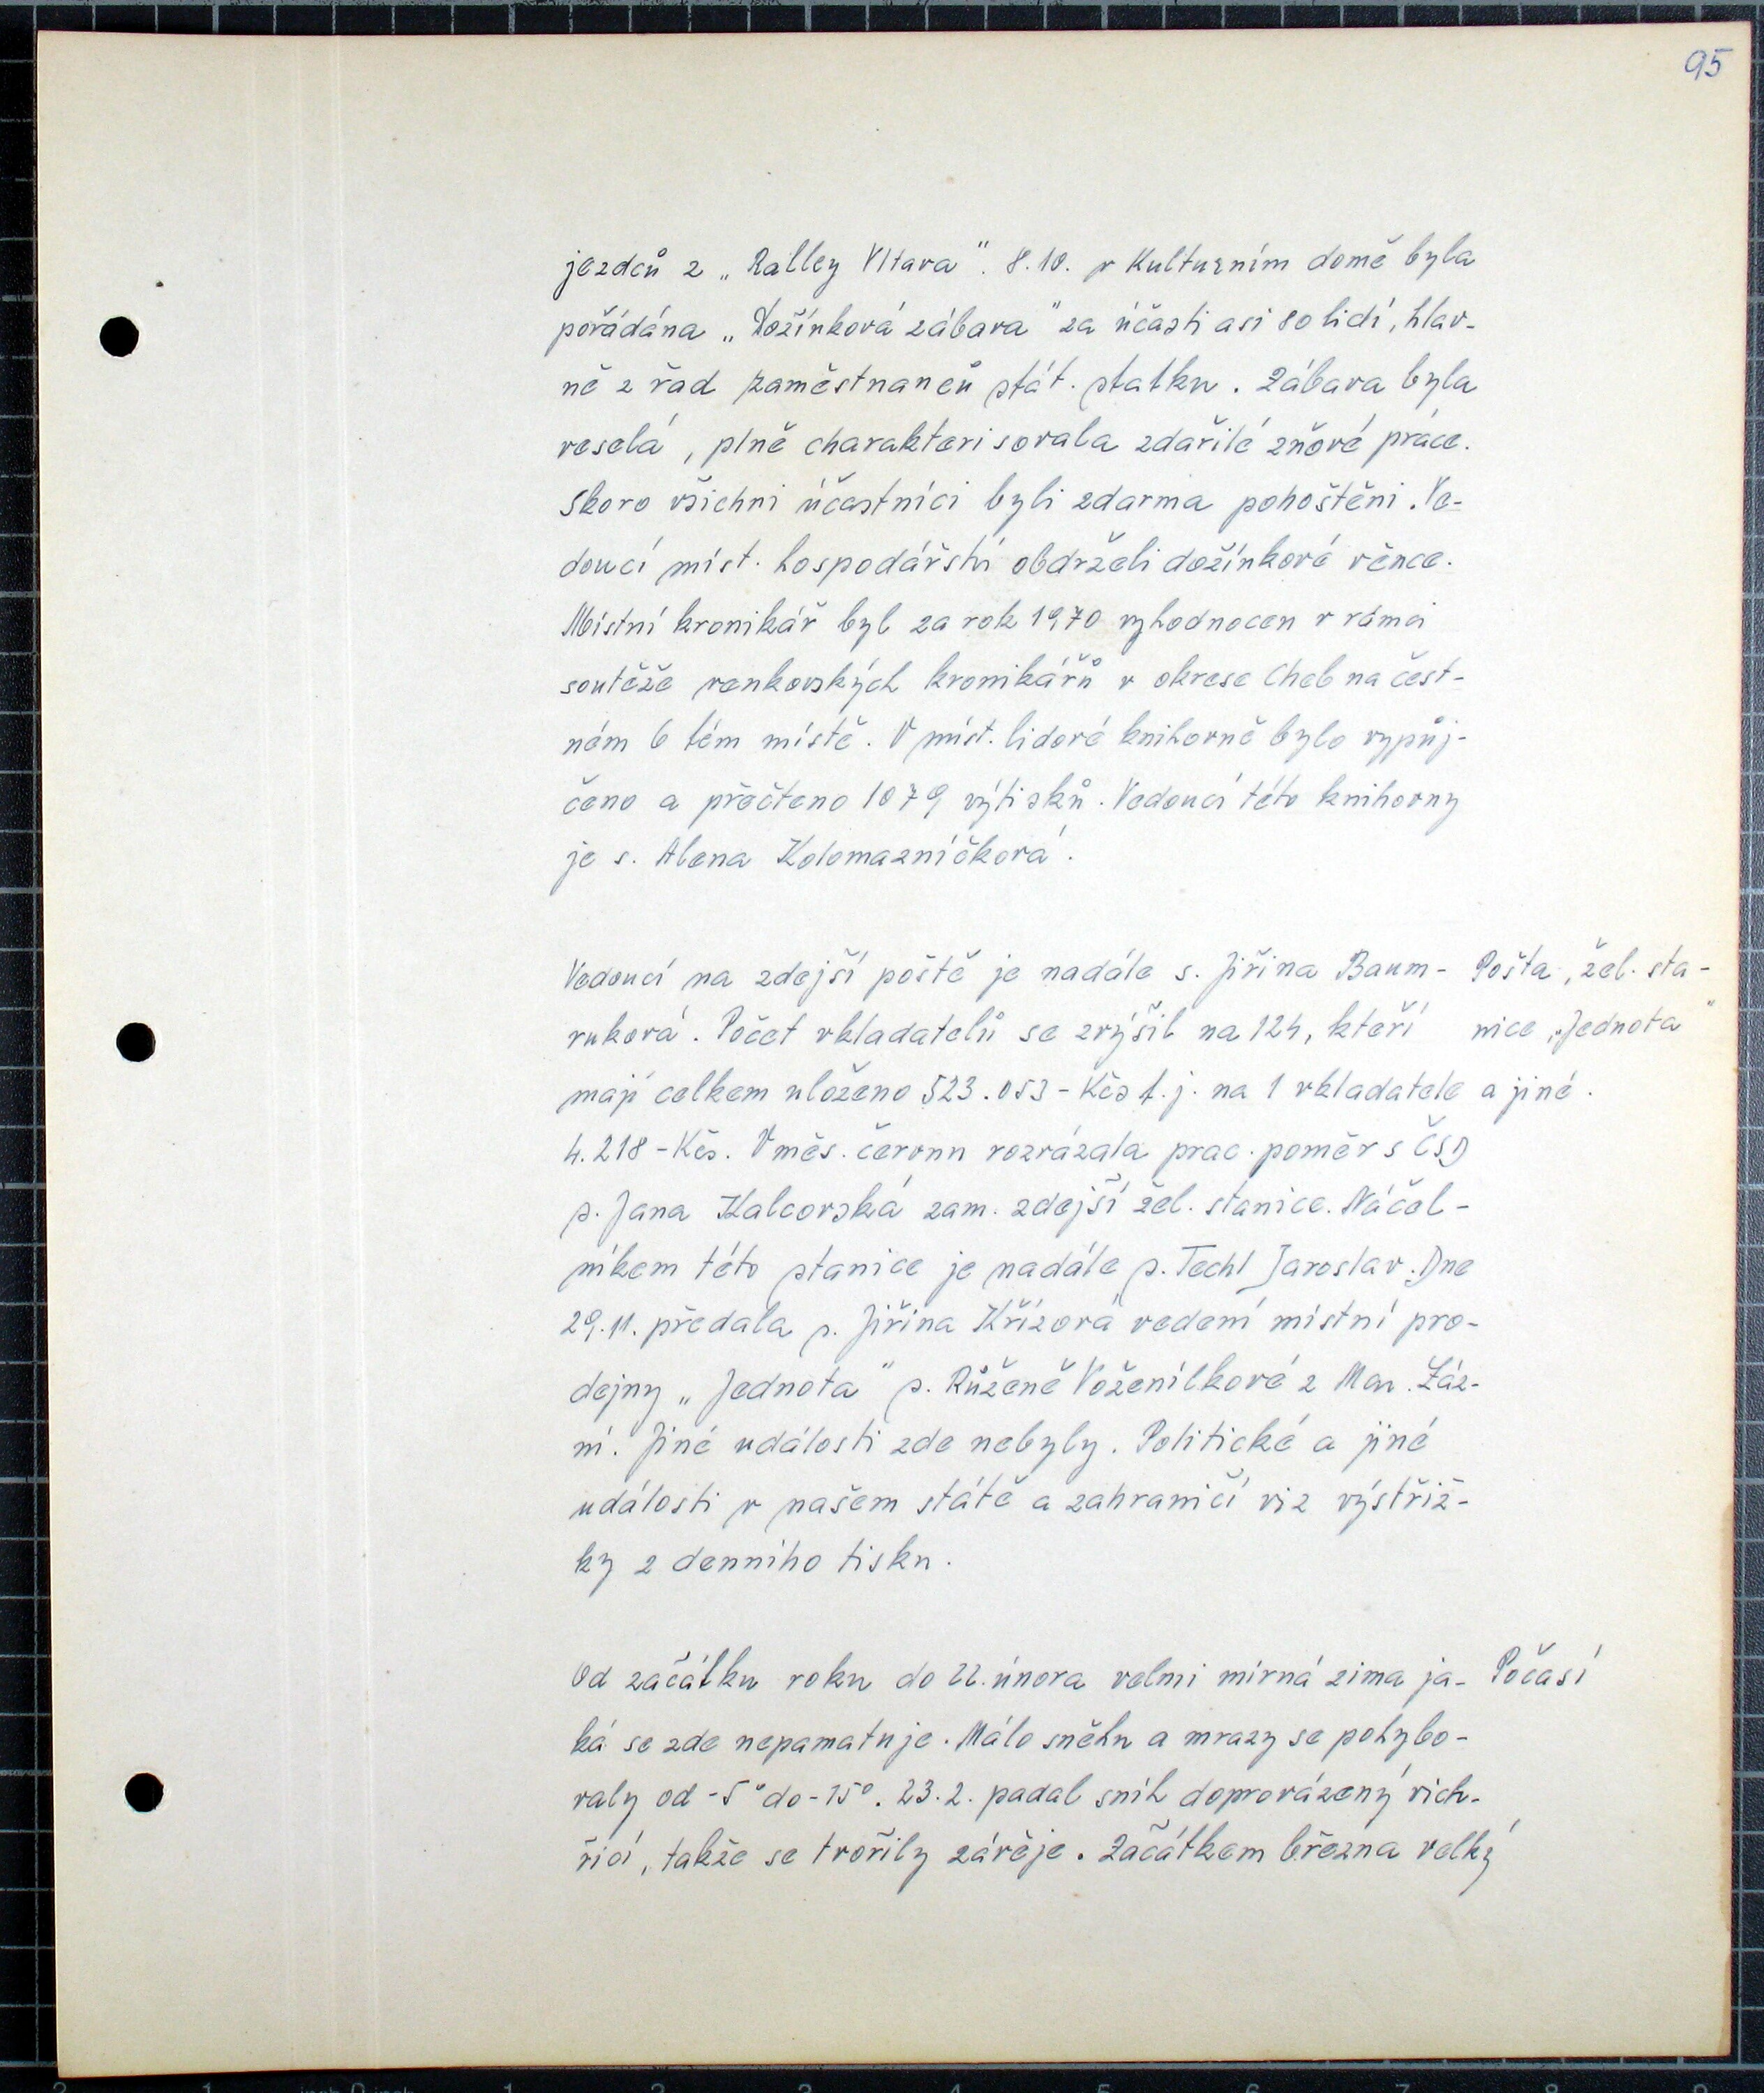 95
jezdců z „Ralley Vltava". 8.10. v Kulturním domě byla
pořádána „Dožínková zábava" za účasti asi 80 lidí, hlav-
ně z řad zaměstnanců stát. statku. Zábava byla
veselá, plně charakterisovala zdařilé žňové práce.
Skoro všichni účastníci byli zdarma pohoštěni. Ve-
doucí míst. hospodářství obdrželi dožínkové věnce.
Místní kronikář byl za rok 1970 vyhodnocen v rámci
soutěže venkovských kronikářů v okrese Cheb na čest-
ném 6 tém místě. V míst. lidové knihovně bylo vypůj-
čeno a přečteno 1079 výtisků. Vedoucí této knihovny
je s. Alena Kolomazníčková.
Vedoucí na zdejší poště je nadále s. Jiřina Baum-
ruková. Počet vkladatelů se zvýšil na 124, kteří
mají celkem uloženo 523.053 - Kčs t.j. na 1 vkladatele
4.218 - Kčs. V měs. červnu rozvázala prac. poměr s ČSD
s. Jana Kalcovská zam. zdejší žel. stanice. Náčel-
níkem této stanice je nadále s. Techl Jaroslav. Dne
29.11. předala s. Jiřina Křízová vedení místní pro-
dejny „Jednota" s. Růženě Voženílkové z Mar. Láz-
ní. Jiné události zde nebyly. Politické a jiné
události v našem státě a zahraničí viz výstřiž-
ky z denního tisku.
Pošta, žel. sta-
nice, „Jednota"
a jiné.
Od začátku roku do 22. února velmi mírná zima ja-
ká se zde nepamatuje. Málo sněhu a mrazy se pohybo-
valy od -5° do -15°. 23.2. padal sníh doprovázený vich-
řicí, takže se tvořily závěje. Začátkem března velký
Počasí